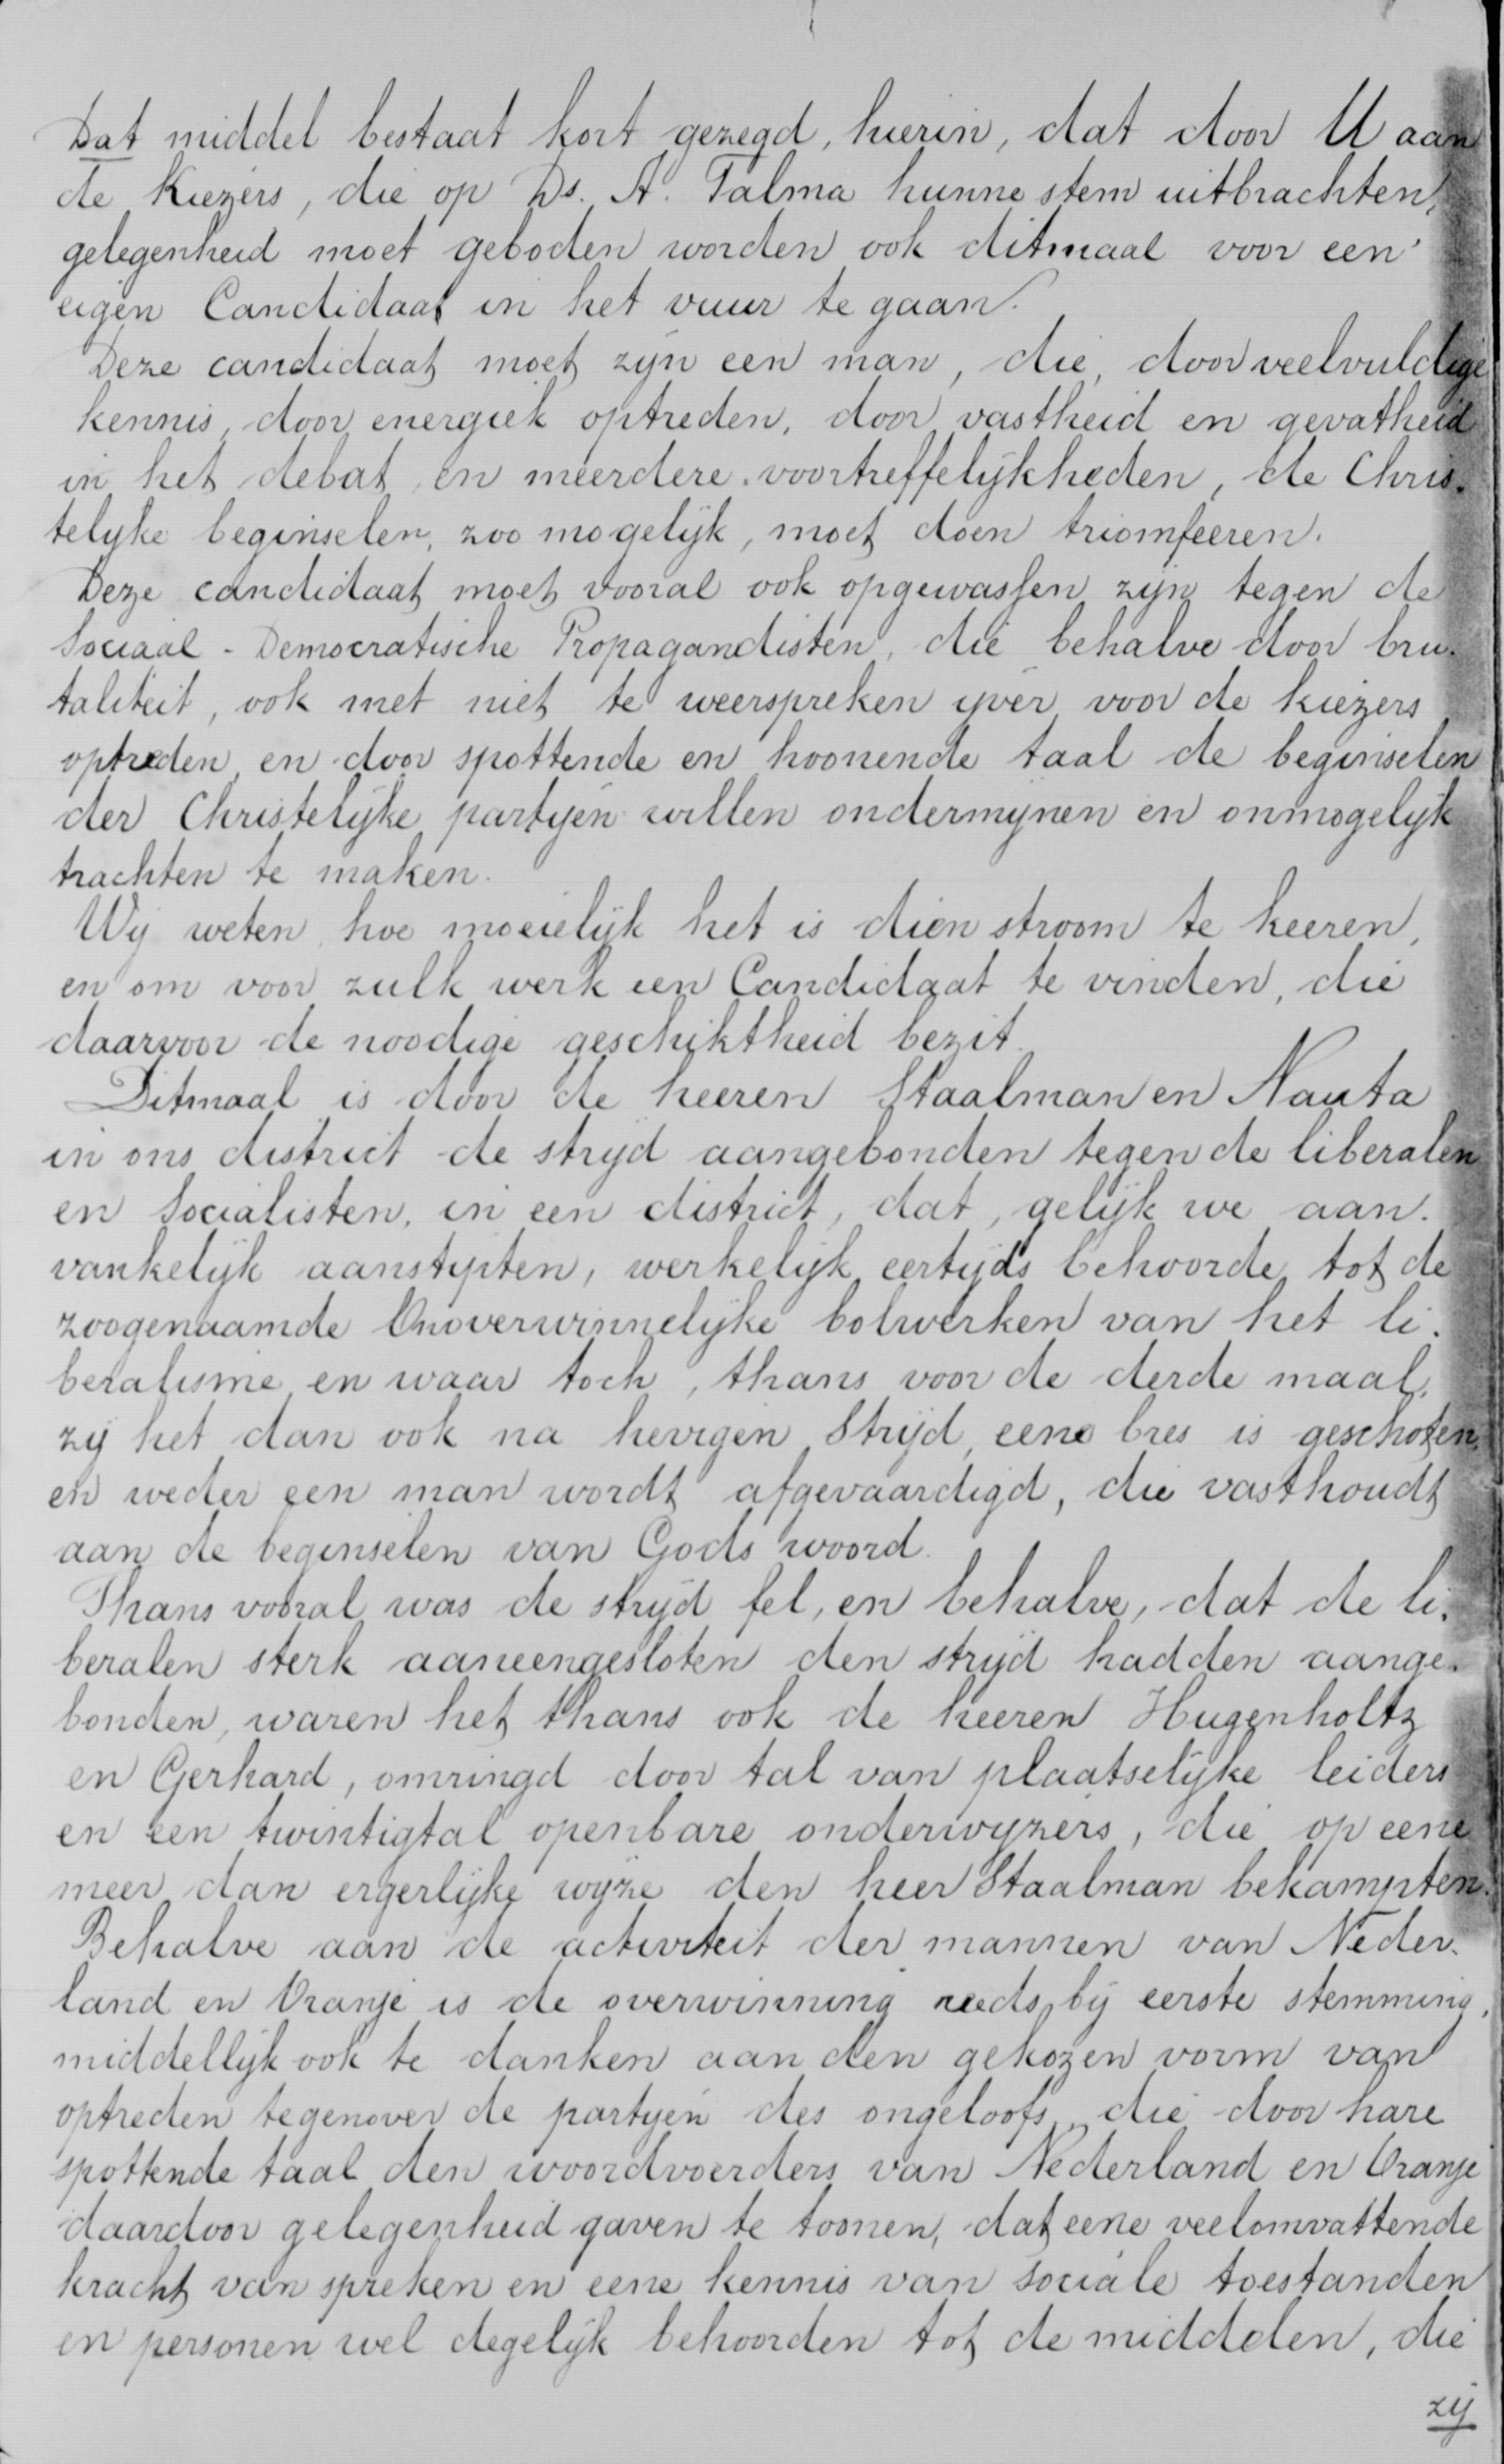 Dat middel bestaat kort gezegd, hierin, dat door U aan
de Kiezers, die op Ds. A. Talma hunne stem uitbrachten,
gelegenheid moet geboden worden ook ditmaal voor een
eigen Candidaat in het vuur te gaan.
Deze candidaat moet zijn een man, die, door veelvuldige
kennis, door energiek optreden, door vastheid en gevatheid
in het debat en meerdere voortreffelijkheden, de Chris-
telijke beginselen, zoo mogelijk, moet doen triomfeeren.
Deze candidaat moet vooral ook opgewassen zijn tegen de
Sociaal-Democratische Propagandisten, die behalve door bru-
taliteit, ook met niet te weerspreken ijver voor de kiezers
optreden en door spottende en hoonende taal de beginselen
der Christelijke partijen willen ondermijnen en onmogelijk
trachten te maken.
Wij weten hoe moeielijk het is dien stroom te keeren,
en om voor zulk werk een Candidaat te vinden, die
daarvoor de noodige geschiktheid bezit.
Ditmaal is door de heeren Staalman en Nauta
in ons district de strijd aangebonden tegen de liberalen
en Socialisten, in een district, dat, gelijk we aan-
vankelijk aanstipten, werkelijk eertijds behoorde tot de
zoogenaamde Onoverwinnelijke bolwerken van het li-
beralisme en waar toch, thans voor de derde maal,
zij het dan ook na hevigen Strijd, eene bres is geschoten,
en weder een man wordt afgevaardigd, die vasthoudt
aan de beginselen van Gods woord.
Thans vooral was de strijd fel, en behalve, dat de li-
beralen sterk aaneengesloten den strijd hadden aange-
bonden, waren het thans ook de heeren Hugenholtz
en Gerhard, omringd door tal van plaatselijke leiders
en een twintigtal openbare onderwijzers, die op eene
meer dan ergerlijke wijze den heer Staalman bekampten.
Behalve aan de activiteit der mannen van Neder-
land en Oranje is de overwinning reeds bij eerste stemming,
middellijk ook te danken aan den gekozen vorm van
optreden tegenover de partijen des ongeloofs, die door hare
spottende taal den woordvoerders van Nederland en Oranje
daardoor gelegenheid gaven te toonen, dat eene veelomvattende
kracht van spreken en eene kennis van sociale toestanden
en personen wel degelijk behoorden tot de middelen, die
zij